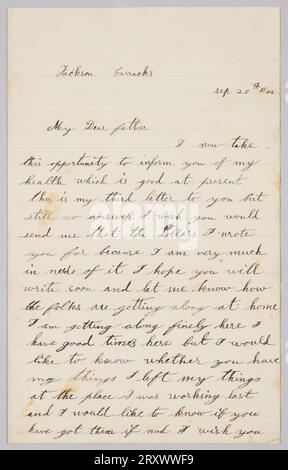 Jackson barracks
Sep 20th
My Dear father
I now take
this opportunity to inform you of my
health which is good at present
this is my third letter to you but
still no answer I wish you would
send me that ten Dollars I wrote
you for because I am very much
in need of it I hope you will
write soon and let me know how
the folks are getting along at home
I am getting along finely here I
have good times here but I would
like to know whether you have
my things I left my things
at the place I was working last
and I would like to know if you
have got them if not I wish you
alamy
Image ID: 2RXWWF9
www.alamy.com